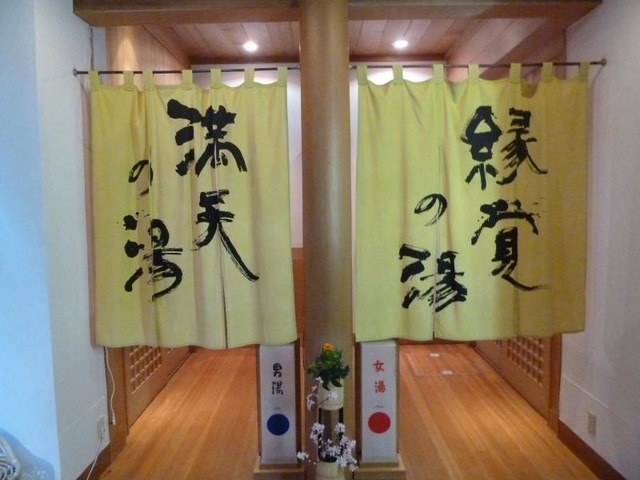 縁覚
の湯
満天
の湯
男湯
女湯